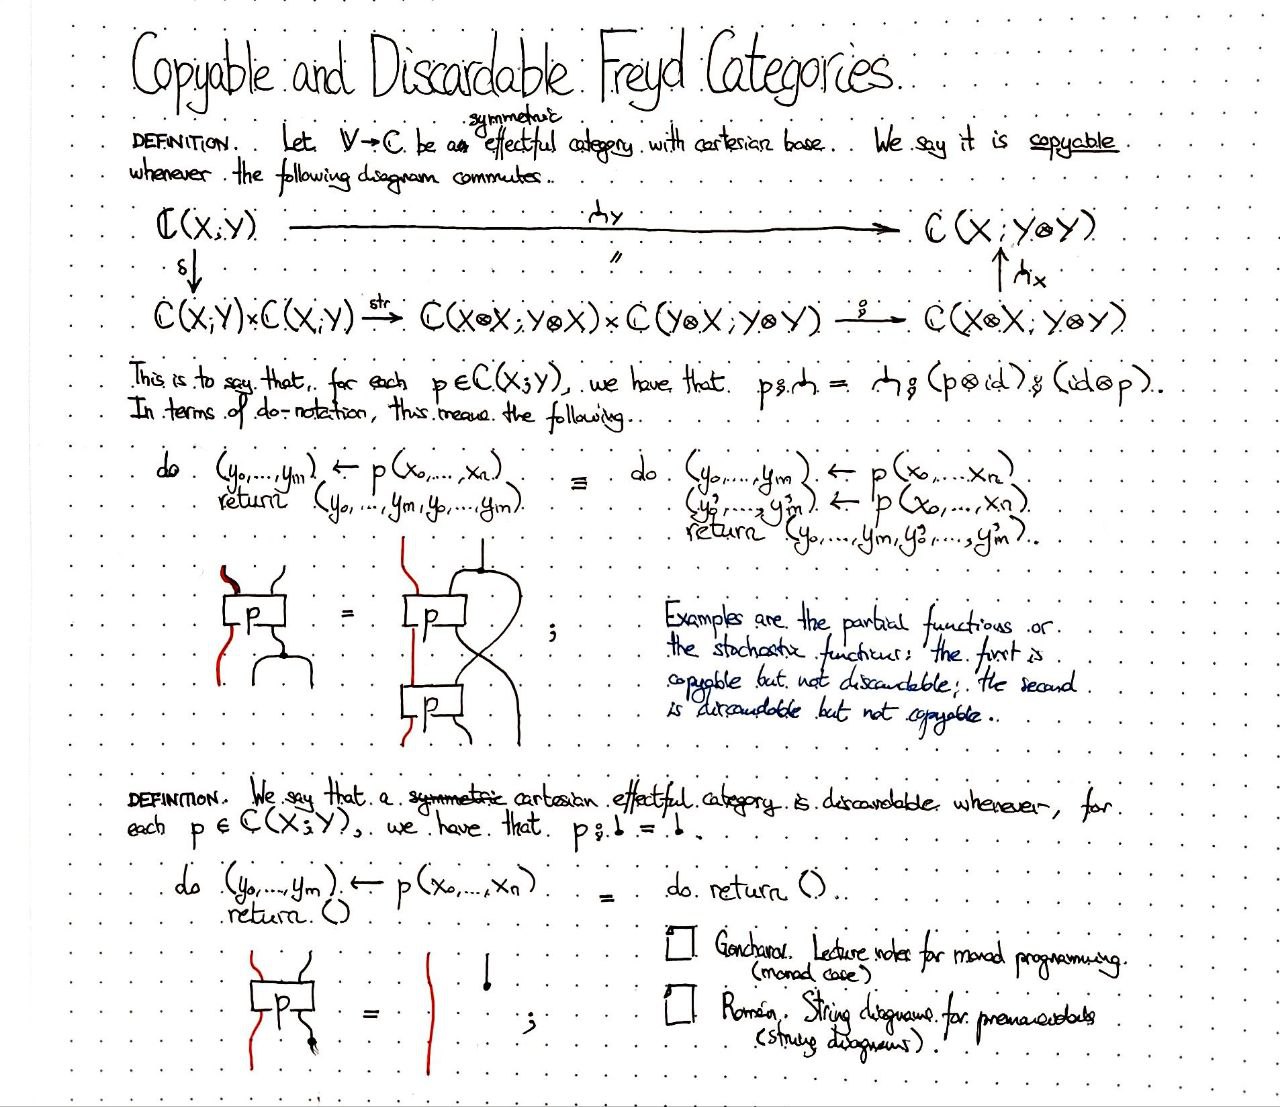 Copyable and Discardable Freyd Categories.
symmetric
DEFINITION. Let 𝕍→ℂ be a effectful category with cartesian base. We say it is copyable
whenever the following diagram commutes.
ℂ(X;Y) ⅄Y ℂ(X;Y⊗Y)
δ = ⅄X
ℂ(X;Y)×ℂ(X;Y) str→ ℂ(X⊗X;Y⊗X)×ℂ(Y⊗X;Y⊗Y) ⨾→ ℂ(X⊗X;Y⊗Y)
This is to say that, for each p∈ℂ(X;Y), we have that p⨾⅄ = ⅄⨾(p⊗id)⨾(id⊗p).
In terms of do-notation, this means the following.
do (y₀,...,yₘ) ← p(x₀,...,xₙ) ≡ do (y₀,...,yₘ) ← p(x₀,...xₙ)
return (y₀,...,yₘ,y₀,...,yₘ) (y₀',...,yₘ') ← p(x₀,...,xₙ)
return (y₀,...,yₘ,y₀',...,yₘ').
p = p ;
p
Examples are the partial functions or
the stochastic functions: the first is
copyable but not discardable; the second
is discardable but not copyable.
DEFINITION. We say that a symmetric cartesian effectful category is discardable whenever, for
each p∈ℂ(X;Y), we have that p⨾! = !.
do (y₀,...,yₘ) ← p(x₀,...,xₙ) = do return ().
return ()
p = ;
Goncharov. Lecture notes for monad programming.
(monad case)
Román. String diagrams for premonoidals
(string diagrams).